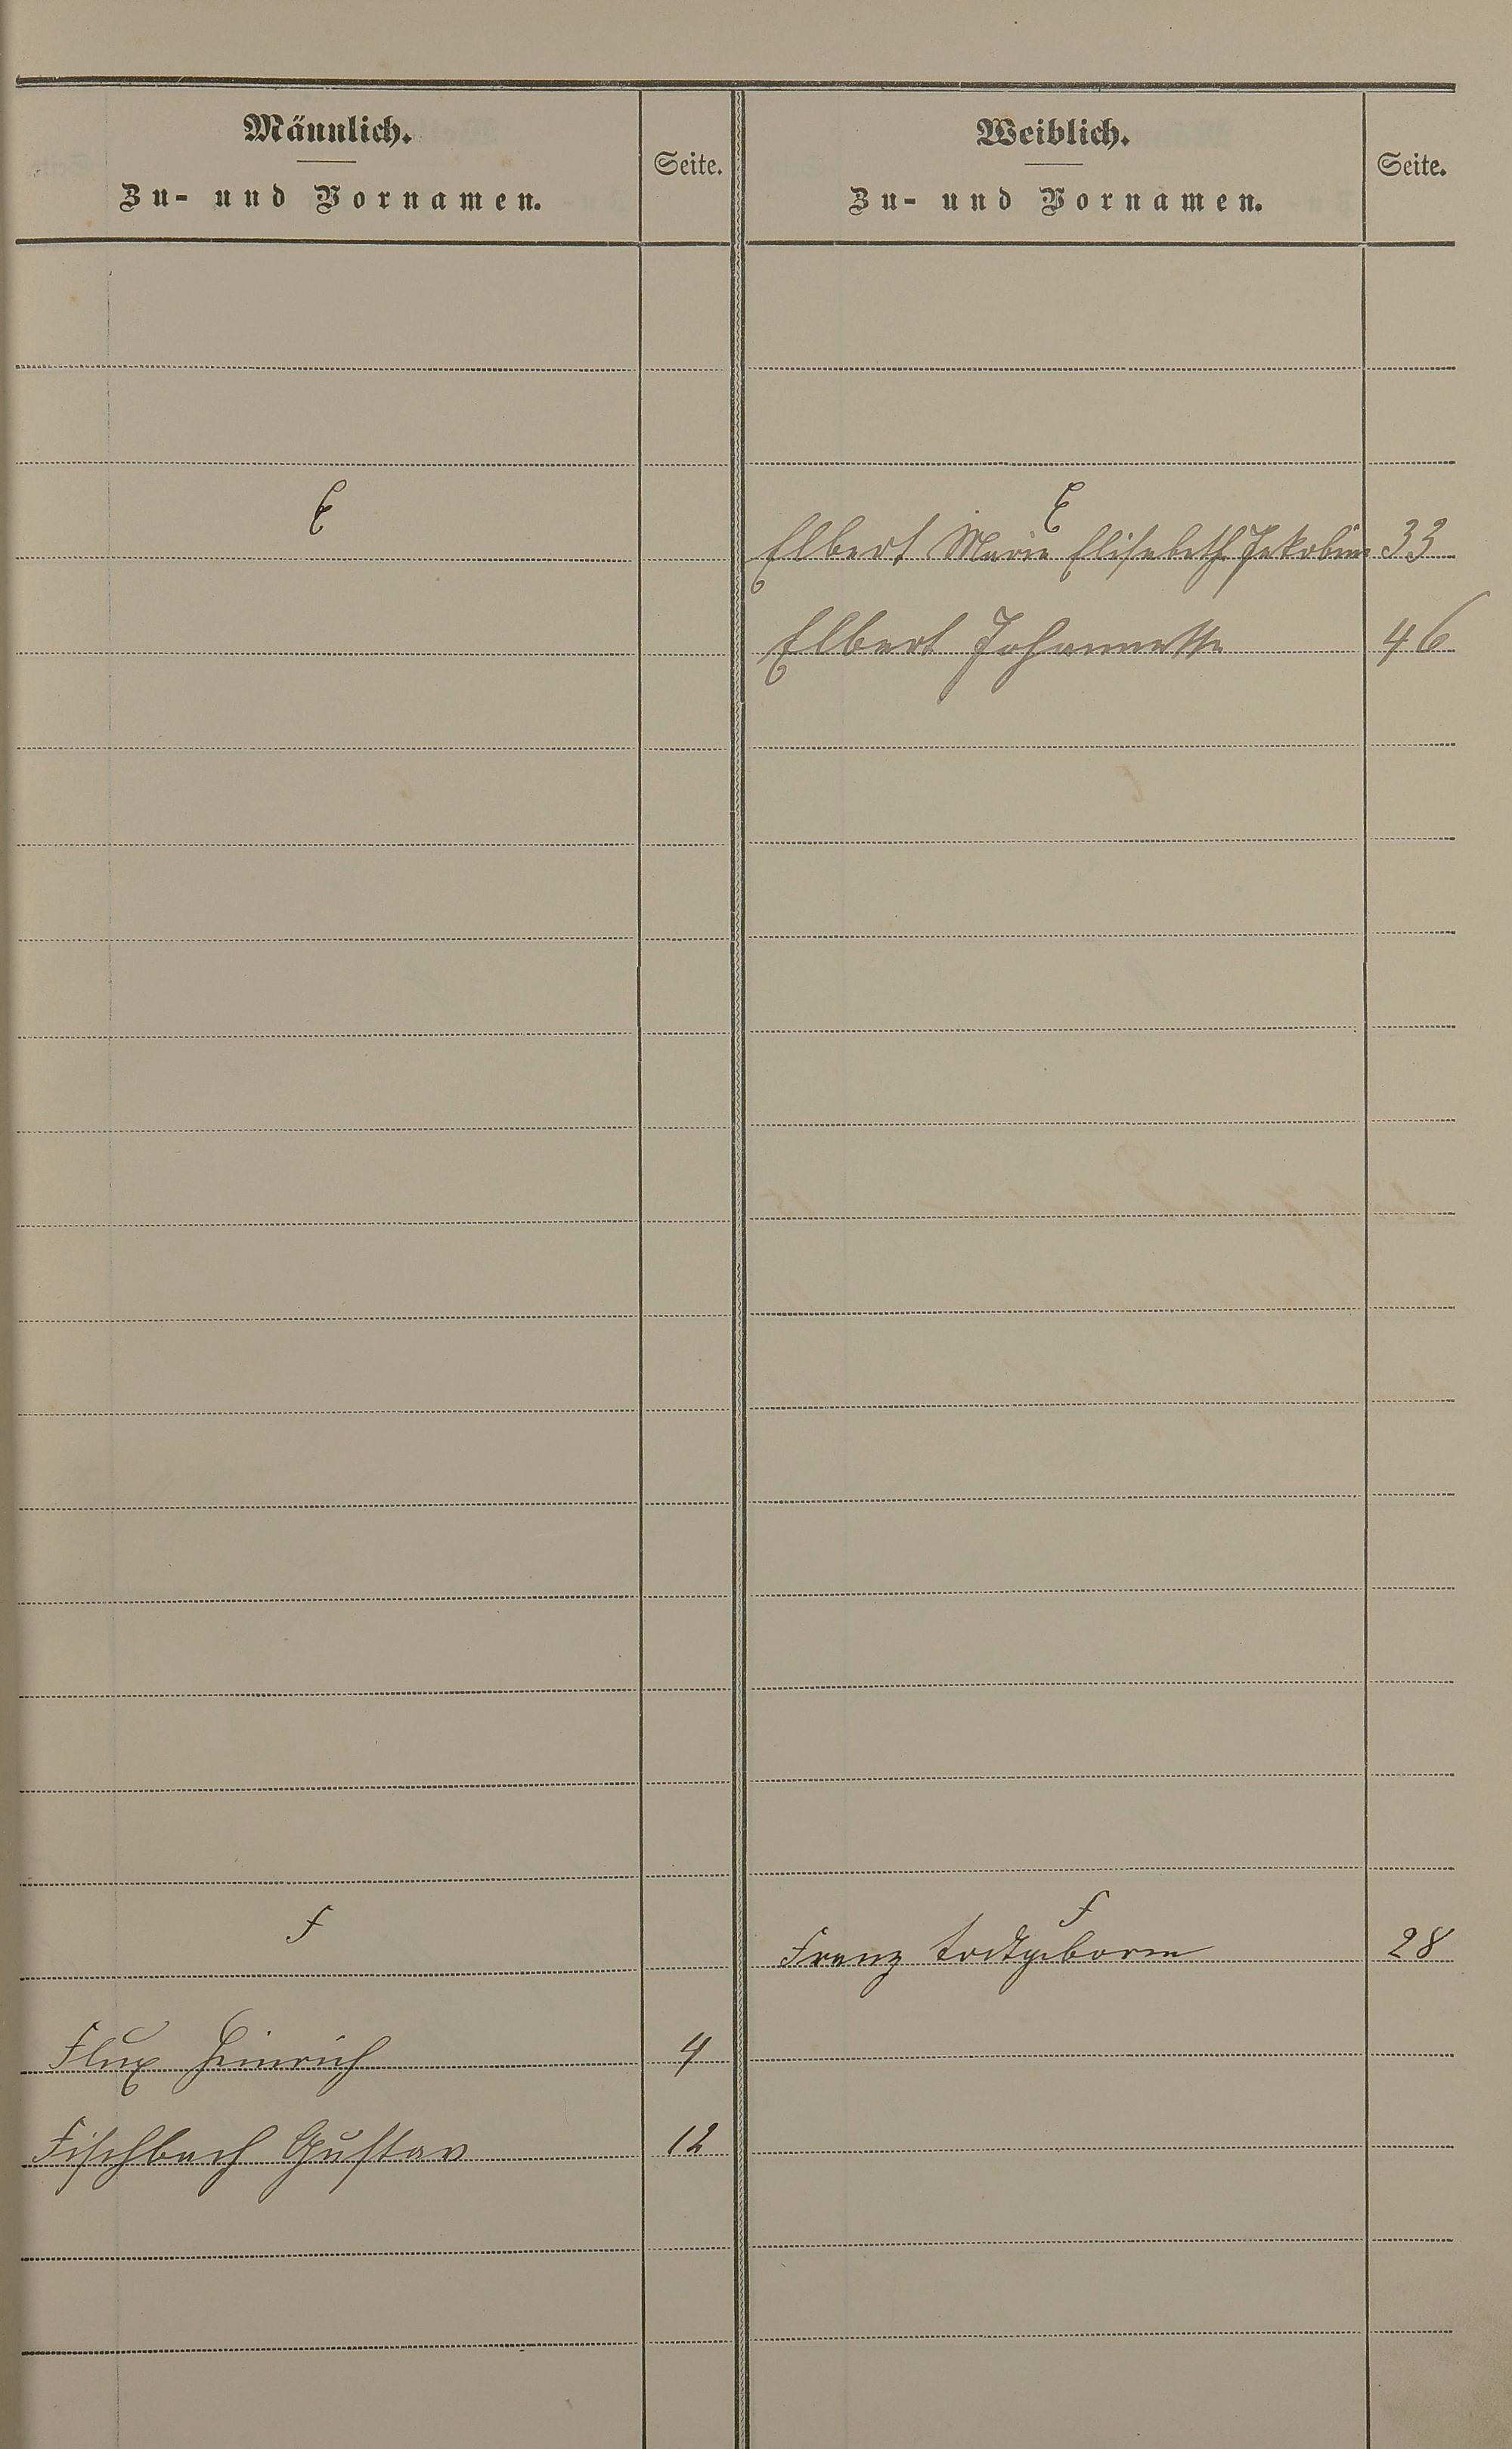 Männlich.
Zu- und Vornamen.
Seite.
Weiblich.
Zu- und Vornamen.
Seite.
E
E
Elbert Marie Elisabeth Jakobine 33
Elbert Johannette 46
F
F
Franz todtgeboren 28
Flux Heinrich 4
Fischbach Gustav 12